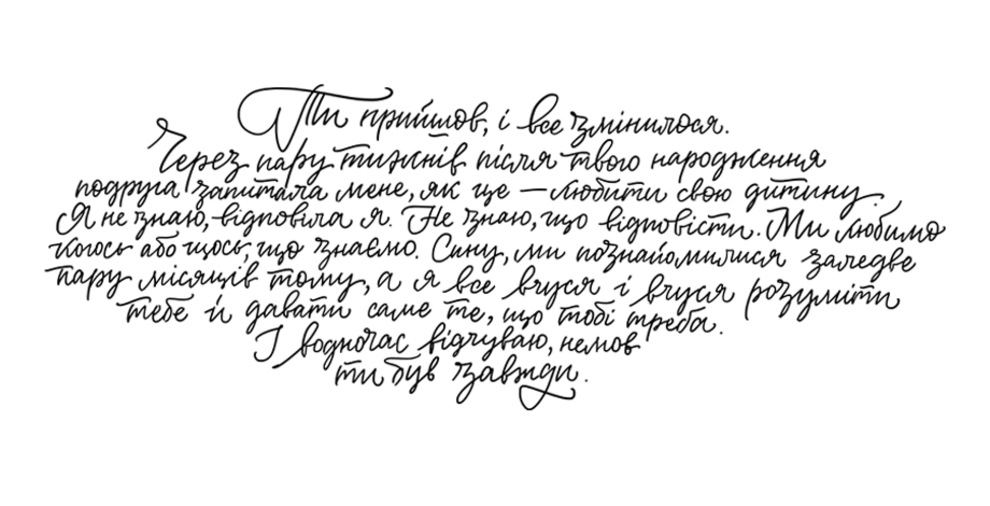 Ти прийшов, і все змінилося.
Через пару тижнів після твого народження
подруга запитала мене, як це — любити свою дитину.
Я не знаю, – відповіла я. Не знаю, що відповісти. Ми любимо
когось або щось, що знаємо. Сину, ми познайомилися заледве
пару місяців тому, а я все вчуся і вчуся розуміти
тебе й давати саме те, що тобі треба.
І водночас відчуваю, немов
ти був завжди.